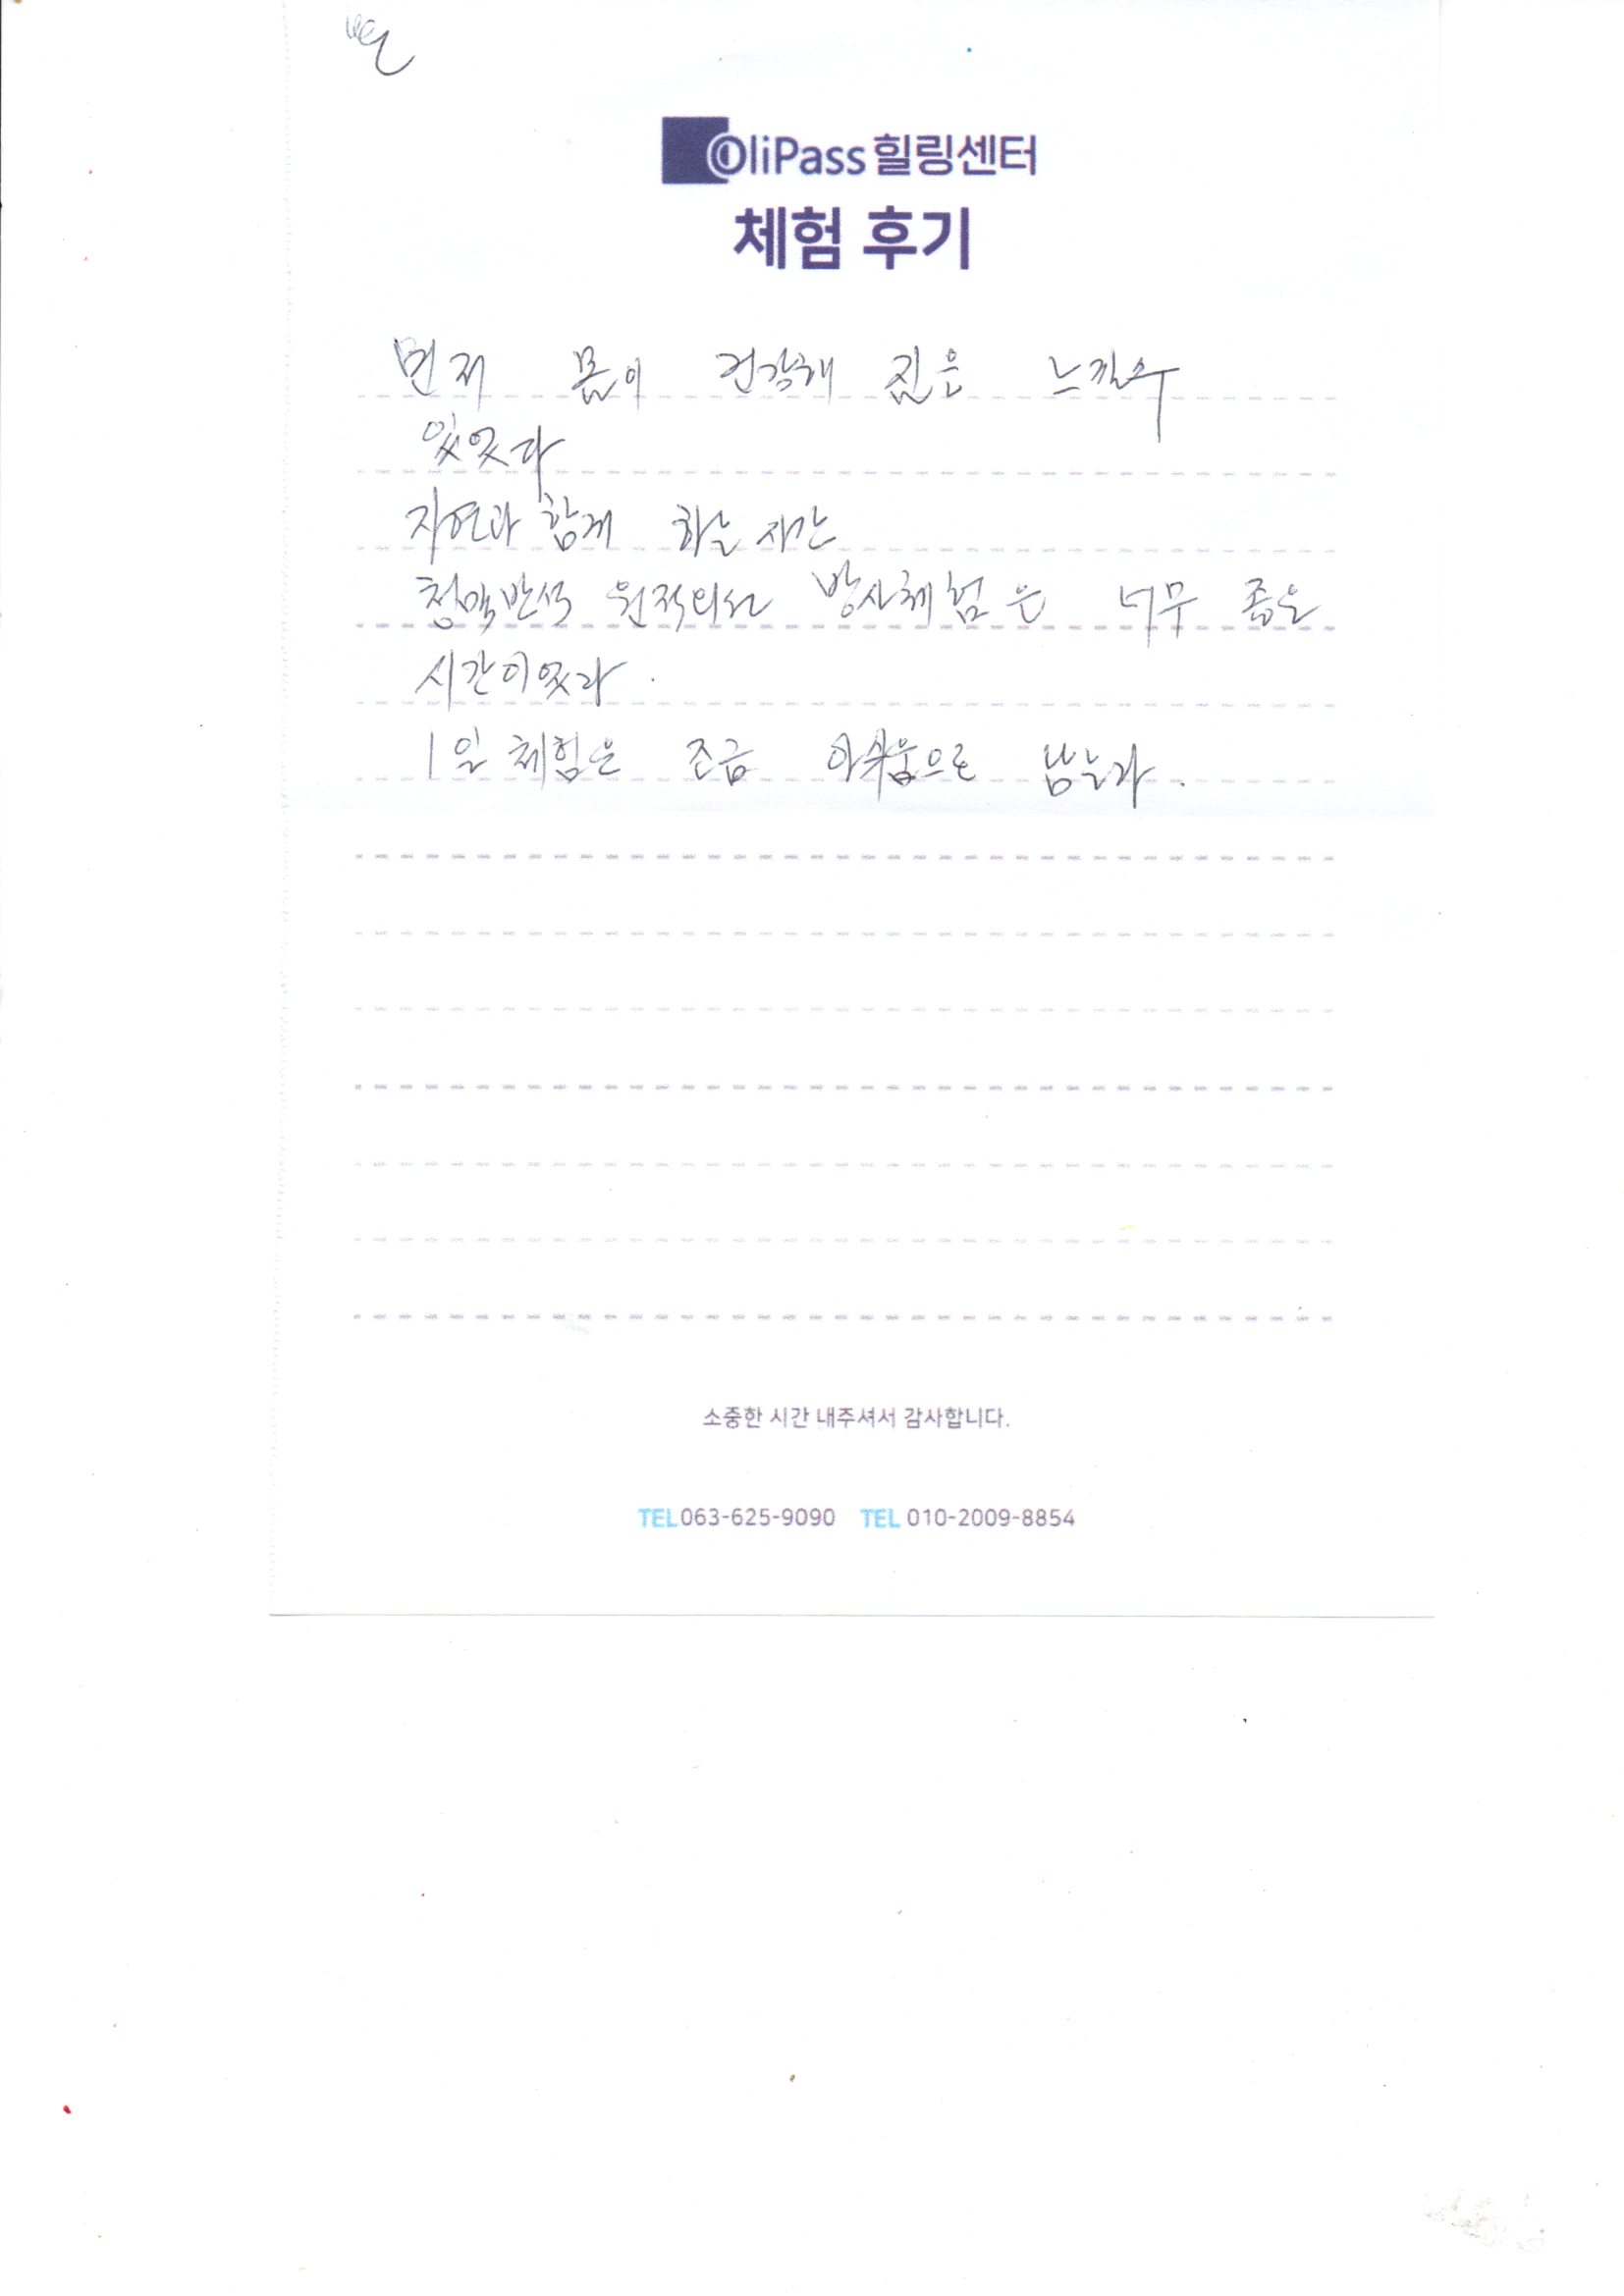 OliPass 힐링센터
체험 후기
먼저 몸이 건강해 짐은 느낄수
있었다
자연과 함께 하는 시간
청맥반석 원적외선 방사체험은 너무 좋은
시간이었다.
1일 체험은 조금 아쉬움으로 남는다.
소중한 시간 내주셔서 감사합니다.
TEL 063-625-9090 TEL 010-2009-8854